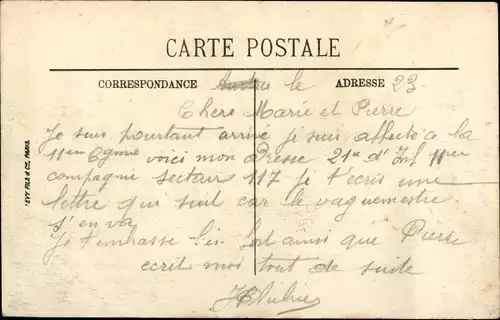 CARTE POSTALE
CORRESPONDANCE le ADRESSE 23
Chère Marie et Pierre
Je suis pourtant arrivé je suis affecté a la
11em Cgnie voici mon adresse 21e d' Inf 11em
compagnie secteur 117 je t'ecris une
lettre qui suit car le vaguemestre
s'en va
Je t'embrasse bien fort ainsi que Pierre
ecrit moi tout de suite
LEVY FILS & Cie, PARIS